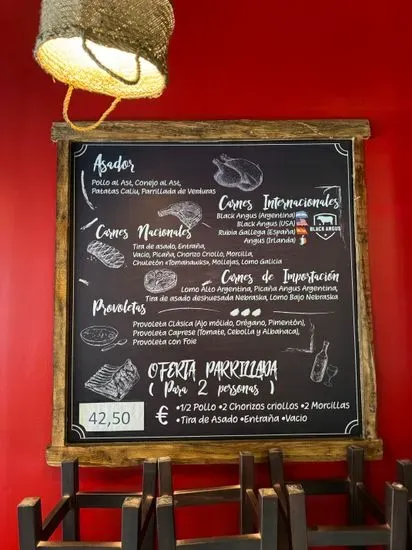 Asador
Pollo al Ast, Conejo al Ast,
Patatas Caliu, Parrillada de Verduras
Carnes Internacionales
Black Angus (Argentina)
Black Angus (USA)
Rubia Gallega (España)
Angus (Irlanda)
BLACK ANGUS
Carnes Nacionales
Tira de asado, Entraña,
Vacio, Picaña, Chorizo Criollo, Morcilla,
Chuletón «Tomahawks», Mollejas, Lomo Galicia
Carnes de Importación
Lomo Alto Argentina, Picaña Angus Argentina,
Tira de asado deshuesada Nebraska, Lomo Bajo Nebraska
Provoletas
Provoleta Clásica (Ajo mólido, Orégano, Pimentón),
Provoleta Caprese (Tomate, Cebolla y Albahaca),
Provoleta con Foie
OFERTA PARRILLADA
( Para 2 personas )
42,50 €
•1/2 Pollo •2 Chorizos criollos •2 Morcillas
•Tira de Asado •Entraña •Vacio